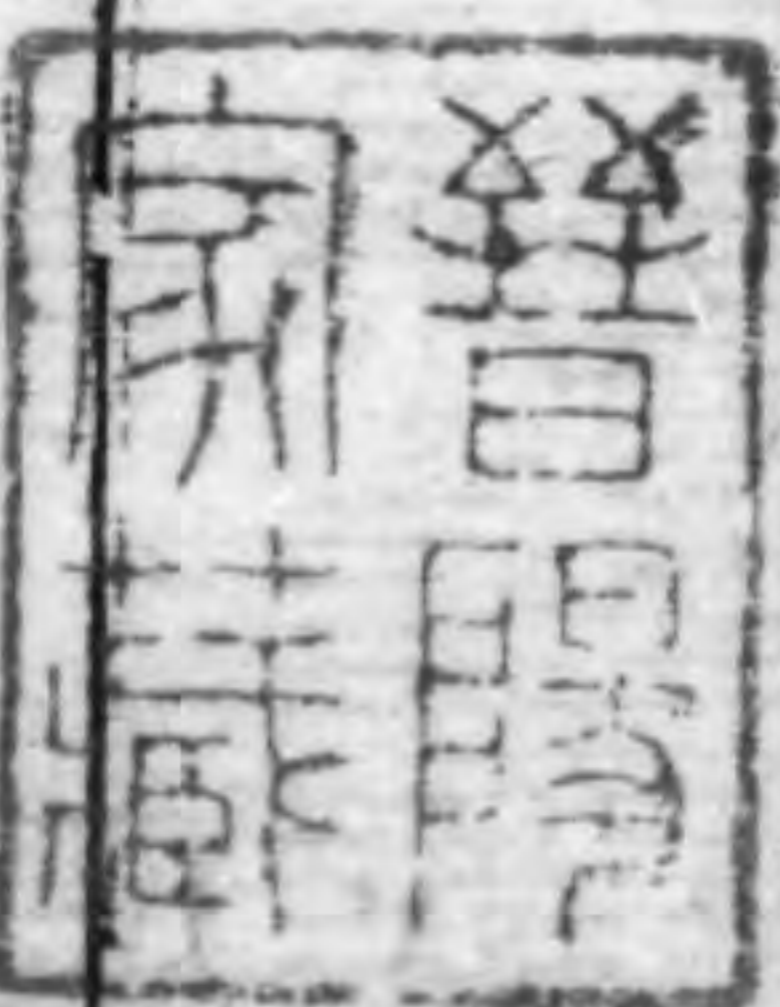 晉陽
家藏